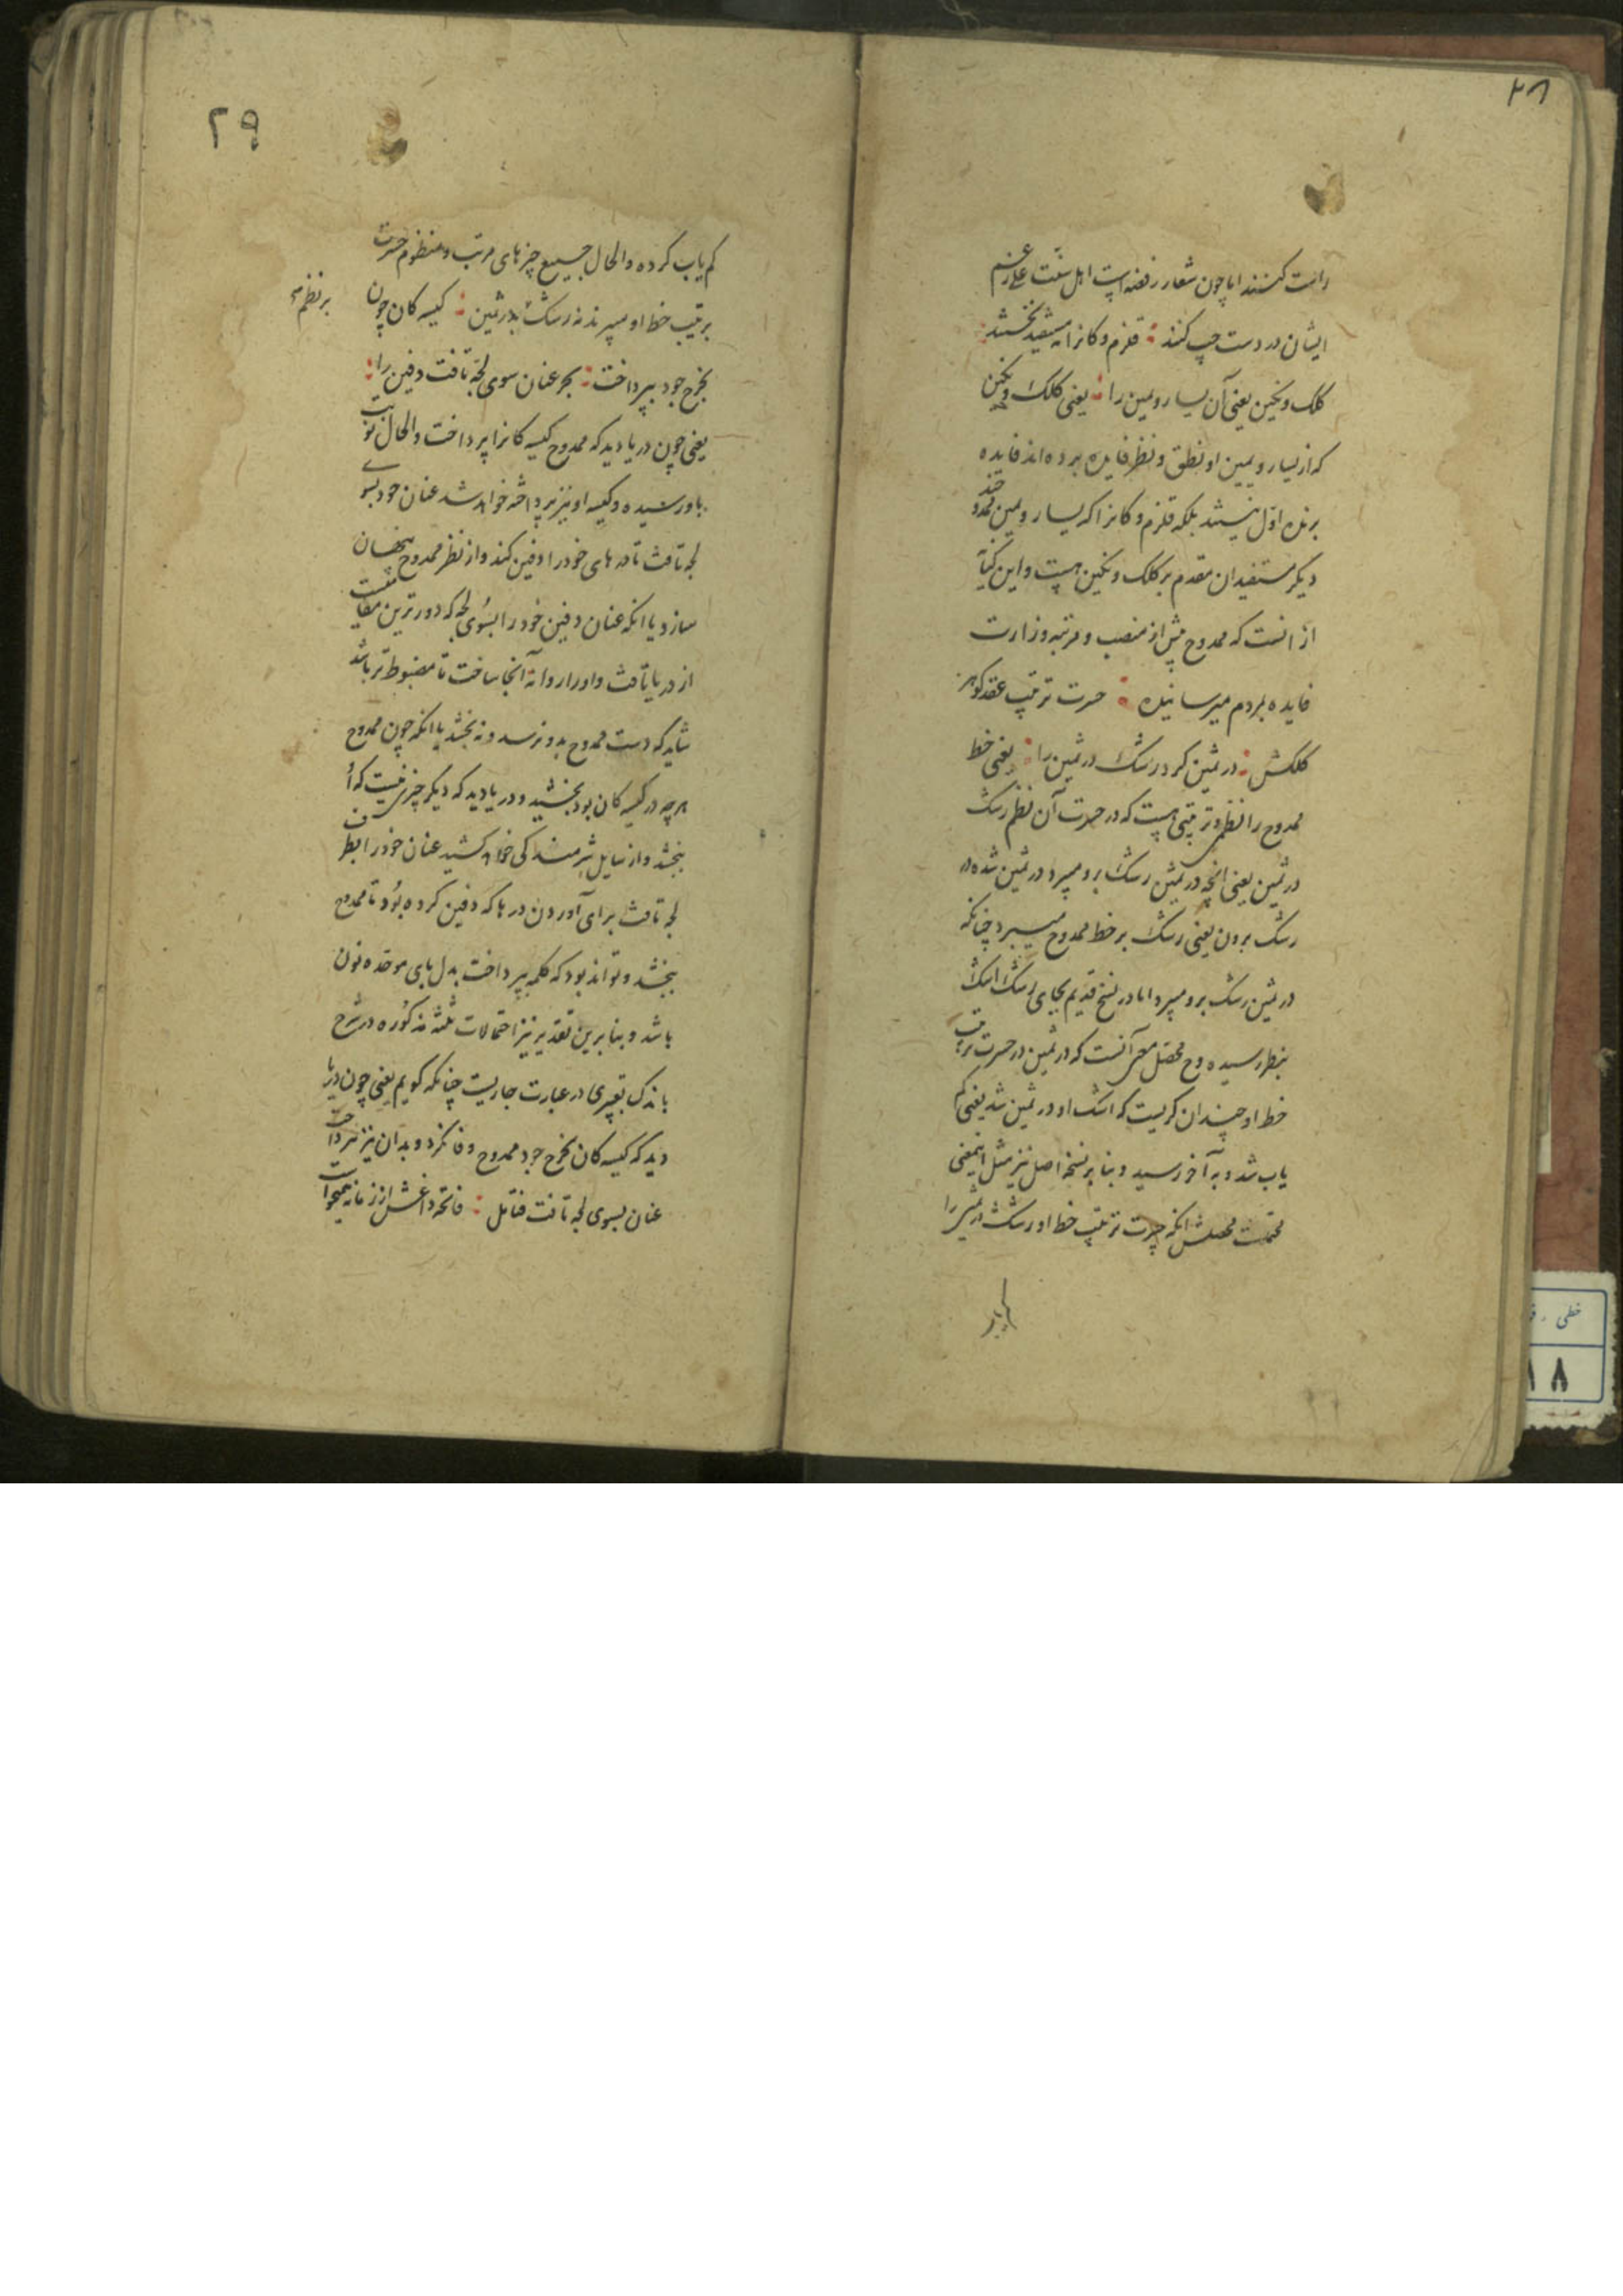 ۲۸
راست کنند اما چون شعار رفضه است اهل سنت علی رغم
ایشان در دست چپ کنند قلزم و کانرا نه مستفید نخستند
کلک و نگین یعنی آن یسار و یمین را یعنی کلک و نگین
که از یسار و یمین او نطق و نظر فایده برده اند فایده
برنده اول نیستند بلکه قلزم و کانرا که یسار و یمین ممدوحند
دیگر مستفیدان مقدم بر کلک و نگین هست و این کنایه
از انست که ممدوح پیش از منصب و مرتبه وزارت
فایده بمردم میرسانیده حسرت ترتیب عقد گوهر
کلکش در ثمین کرد رشک در ثمین را یعنی خط
ممدوح را نظم و ترتیبی هست که در حسرت آن نظم رشک
در ثمین یعنی انچه در ثمین رشک برو میبرد در ثمین شده در
رشک بردن یعنی رشک بر خط ممدوح میبرد چنانکه
در ثمین رشک برو میبرد اما در نسخ قدیم بجای رشک اشک
بنظر رسیده وح محصل معنی آنست که در ثمین در حسرت ترتیب
خط او چندان گریست که اشک او در ثمین شد یعنی کم
یاب شد و به آخر رسید و بنا بر نسخه اصل نیز مثل اینمعنی
محصلش انکه حسرت ترتیب خط او رشک در ثمین را
۲۹
کم یاب کرده والحال جمیع چیزهای مرتب و منظوم حسرت
بر نظم
بر ترتیب خط او میبرند نه رشک بدر ثمین کیسه کان چون
بخرج جود بپرداخت بحر عنان سوی لجه تافت دفین را
یعنی چون دریا دید که ممدوح کیسه کانرا پرداخت والحال نوبت
باو رسیده و کیسه او نیز پرداخته خواهد شد عنان خود بسوی
لجه تافت تا در های خود را دفین کند و از نظر ممدوح پنهان
سازد یا انکه عنان دفین خود را بسوی لجه که دورترین مقامیست
از دریا تافت و او را روانه آنجا ساخت تا مضبوط تر باشد
شاید که دست ممدوح بدو نرسد و نه بخشد یا انکه چون ممدوح
هرچه در کیسه کان بود بخشید و دریا دید که دیگر چیز نیست که او
بخشد و از سایل شرمندگی خواهد کشید عنان خود را بطرف
لجه تافت برای آوردن درها که دفین کرده بود تا ممدوح
بخشد و تواند بود که کلمه بپرداخت بدل بای موحده نون
باشد و بنابرین تقدیر نیز احتمالات ثلثه مذکوره در شرح
باندک تغییری در عبارت جاریست چنانکه گویم یعنی چون دریا
دید که کیسه کان بخرج جود ممدوح وفا نکرد و بدان نیز نپرداخت
عنان بسوی لجه تافت فتامل فاتحه داغش از زمانه همیخواست
خطی
۱۸